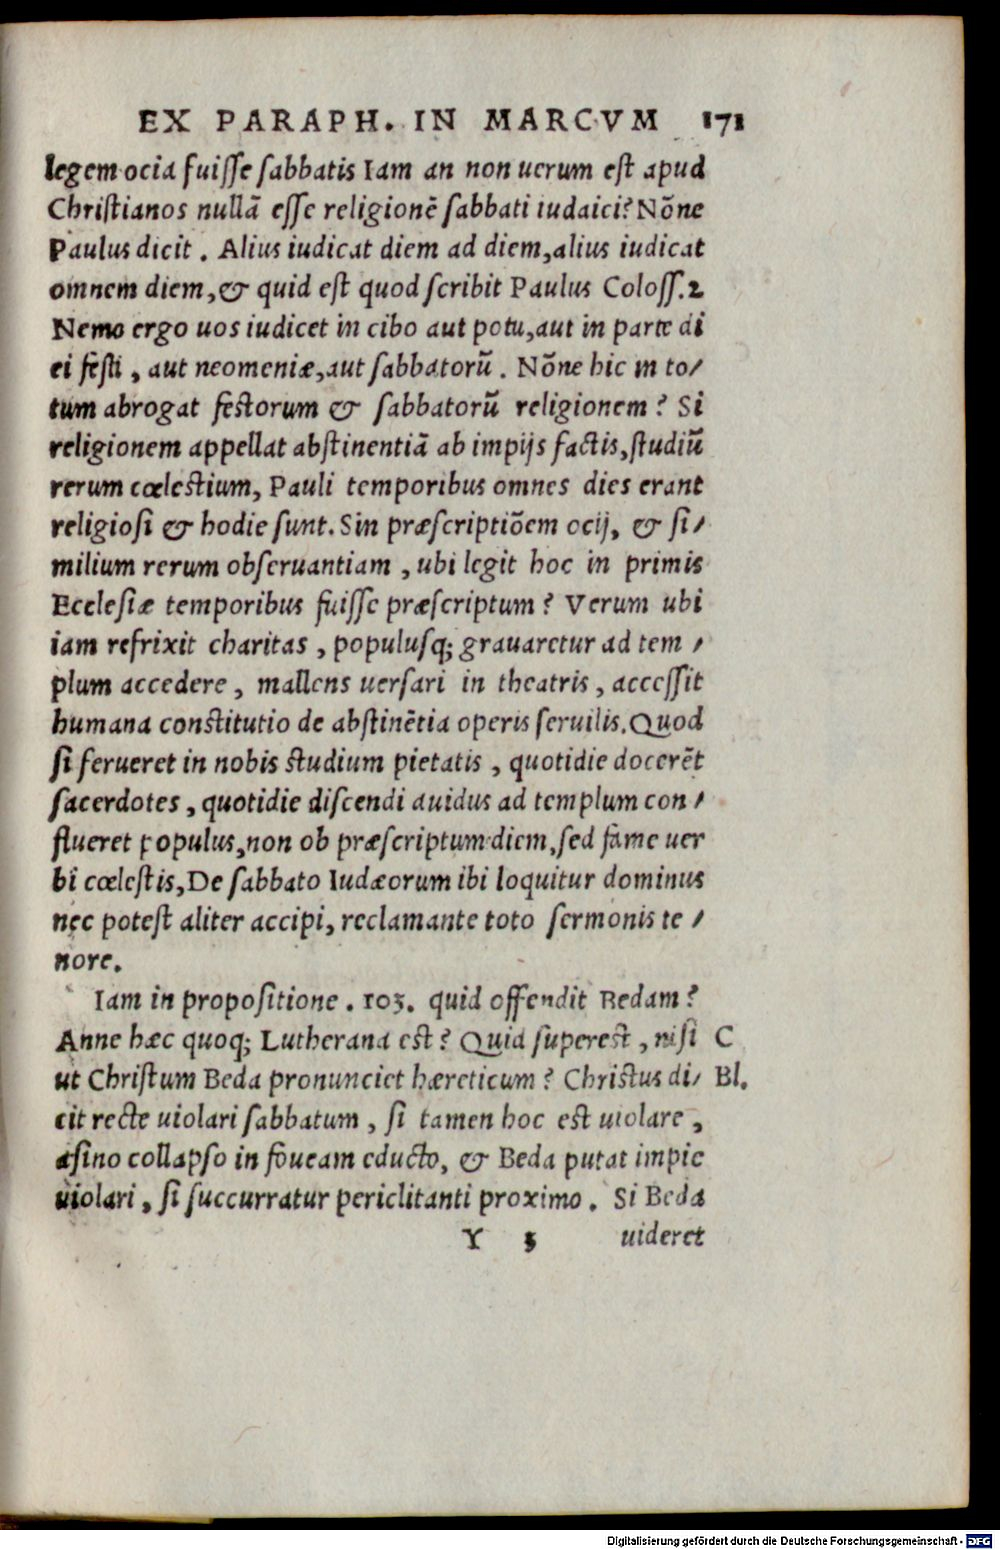 EX PARAPH. IN MARCVM 171
legem ocia fuisse sabbatis Iam an non uerum est apud
Christianos nullā esse religionē sabbati iudaici? Nōne
Paulus dicit . Alius iudicat diem ad diem, alius iudicat
omnem diem, & quid est quod scribit Paulus Coloss. 2
Nemo ergo uos iudicet in cibo aut potu, aut in parte di
ei festi , aut neomeniæ, aut sabbatorū . Nōne hic in to/
tum abrogat festorum & sabbatorū religionem ? Si
religionem appellat abstinentiā ab impijs factis, studiū
rerum cœlestium, Pauli temporibus omnes dies erant
religiosi & hodie sunt. Sin præscriptiōem ocij, & si/
milium rerum obseruantiam , ubi legit hoc in primis
Ecclesiæ temporibus fuisse præscriptum ? Verum ubi
iam refrixit charitas , populusq; grauaretur ad tem /
plum accedere , mallens uersari in theatris , accessit
humana constitutio de abstinētia operis seruilis. Quod
si ferueret in nobis studium pietatis , quotidie docerēt
sacerdotes , quotidie discendi auidus ad templum con /
flueret populus, non ob præscriptum diem, sed fame uer
bi cœlestis, De sabbato Iudæorum ibi loquitur dominus
nec potest aliter accipi, reclamante toto sermonis te /
nore.
Iam in propositione . 103. quid offendit Bedam ?
Anne hæc quoq; Lutherana est ? Quid superest , nisi C
ut Christum Beda pronunciet hæreticum ? Christus di/ Bl.
cit recte uiolari sabbatum , si tamen hoc est uiolare ,
asino collapso in foueam educto, & Beda putat impie
uiolari , si succurratur periclitanti proximo . Si Beda
Y 3 uideret
Digitalisierung gefördert durch die Deutsche Forschungsgemeinschaft - DFG